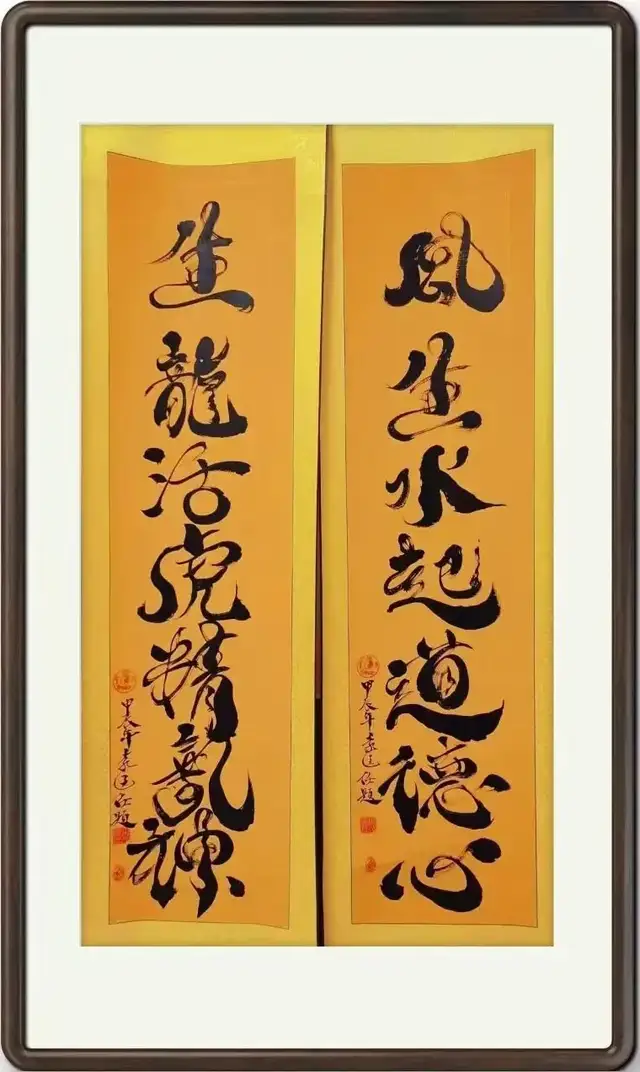 風生水起道德心
甲辰年
生龍活虎精氣神
甲辰年